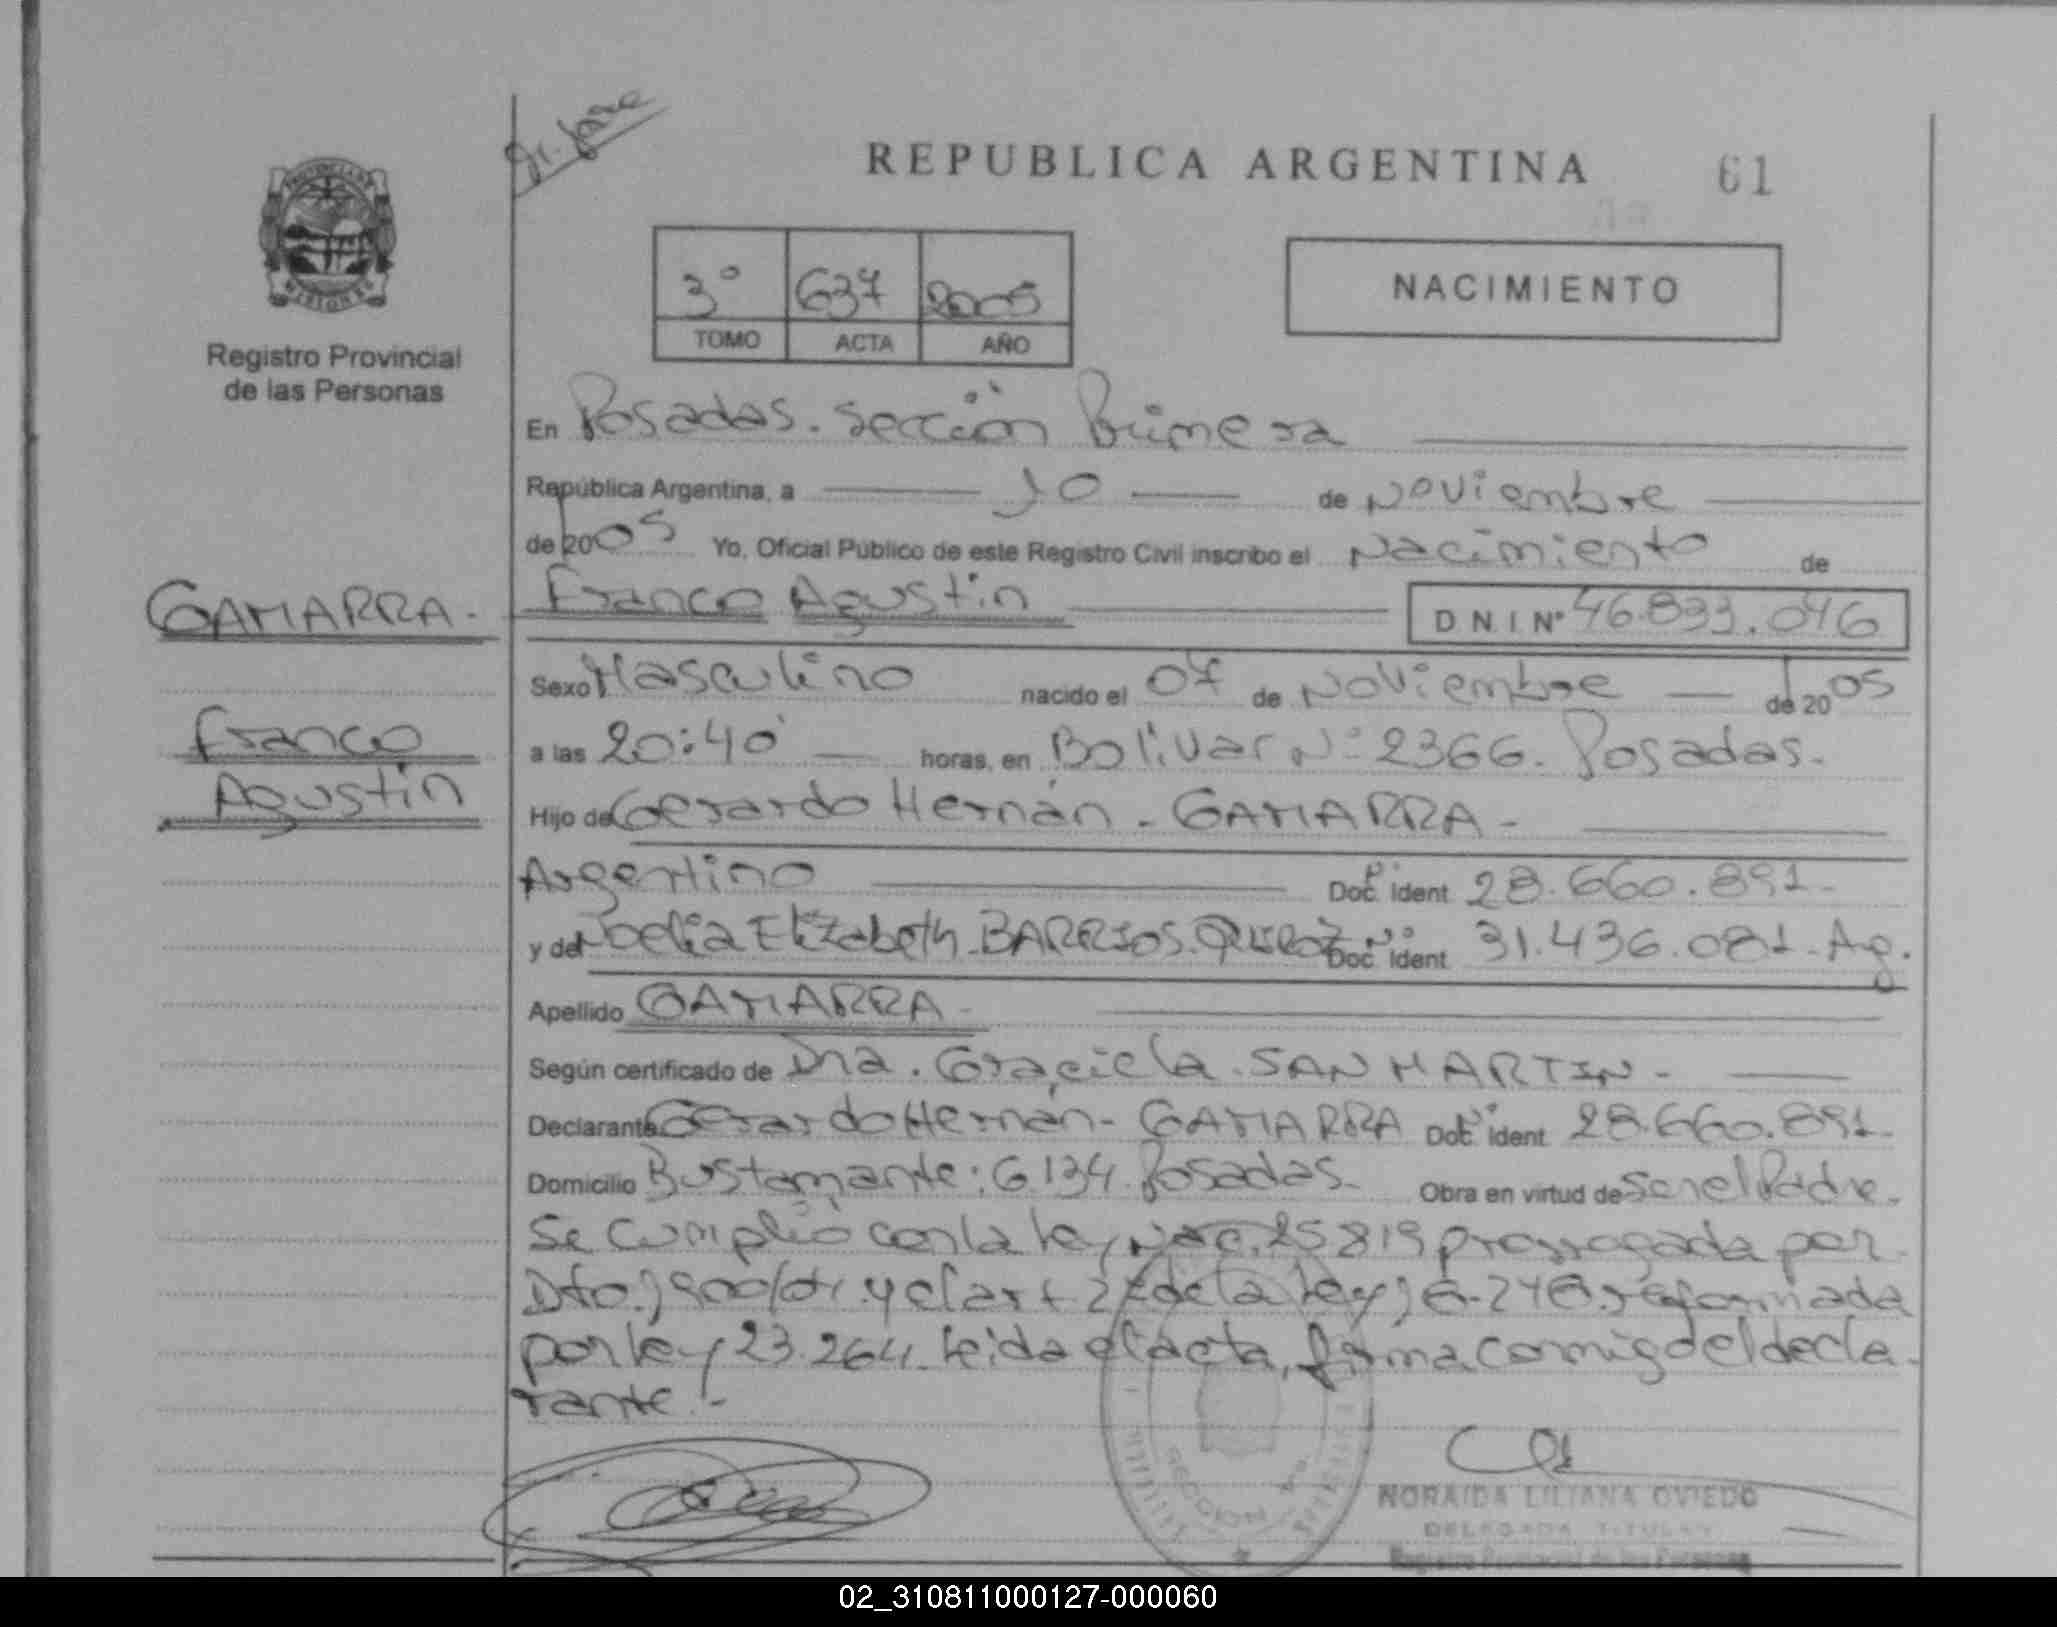 REPUBLICA ARGENTINA 61
PROVINCIA DE MISIONES
Registro Provincial
de las Personas
3º 637 2005
TOMO ACTA AÑO
NACIMIENTO
En Posadas. Sección Primera
República Argentina, a 10 de Noviembre
de 2005 Yo, Oficial Público de este Registro Civil inscribo el Nacimiento de
GAMARRA.
Franco Agustin
Franco Agustin D N.I. Nº 46.833.046
Sexo Masculino nacido el 07 de Noviembre de 2005
a las 20:40 horas, en Bolivar Nº 2366. Posadas.
Hijo de Gerardo Hernán - GAMARRA -
Argentino Doc. Ident 28.660.891-
y de Noelia Elizabeth BARRIOS. Doc. Ident 31.436.081. Ag.
Apellido GAMARRA -
Según certificado de Dra. Graciela SAN MARTIN -
Declarante Gerardo Hernán - GAMARRA Doc. Ident 28.660.891-
Domicilio Bustamante: 6.134. Posadas. Obra en virtud de Ser el Padre.
Se cumplió con la ley Nac. 25819 prorrogada por
Dto. 1900/04 y el art 27 de la ley 18.248 reformada
por ley 23.264. Leida el acta, firma conmigo el decla-
rante.-
NORAIDA LILIANA OVIEDO
DELEGADA TITULAR
Registro Provincial de las Personas
02_310811000127-000060